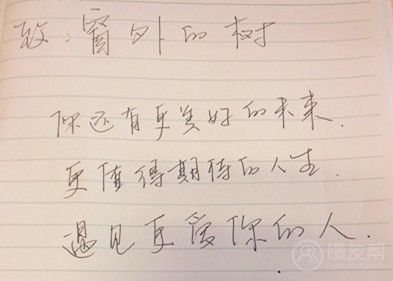 致:窗外的树
你还有更美好的未来.
更值得期待的人生.
遇见更爱你的人.
慢友帮